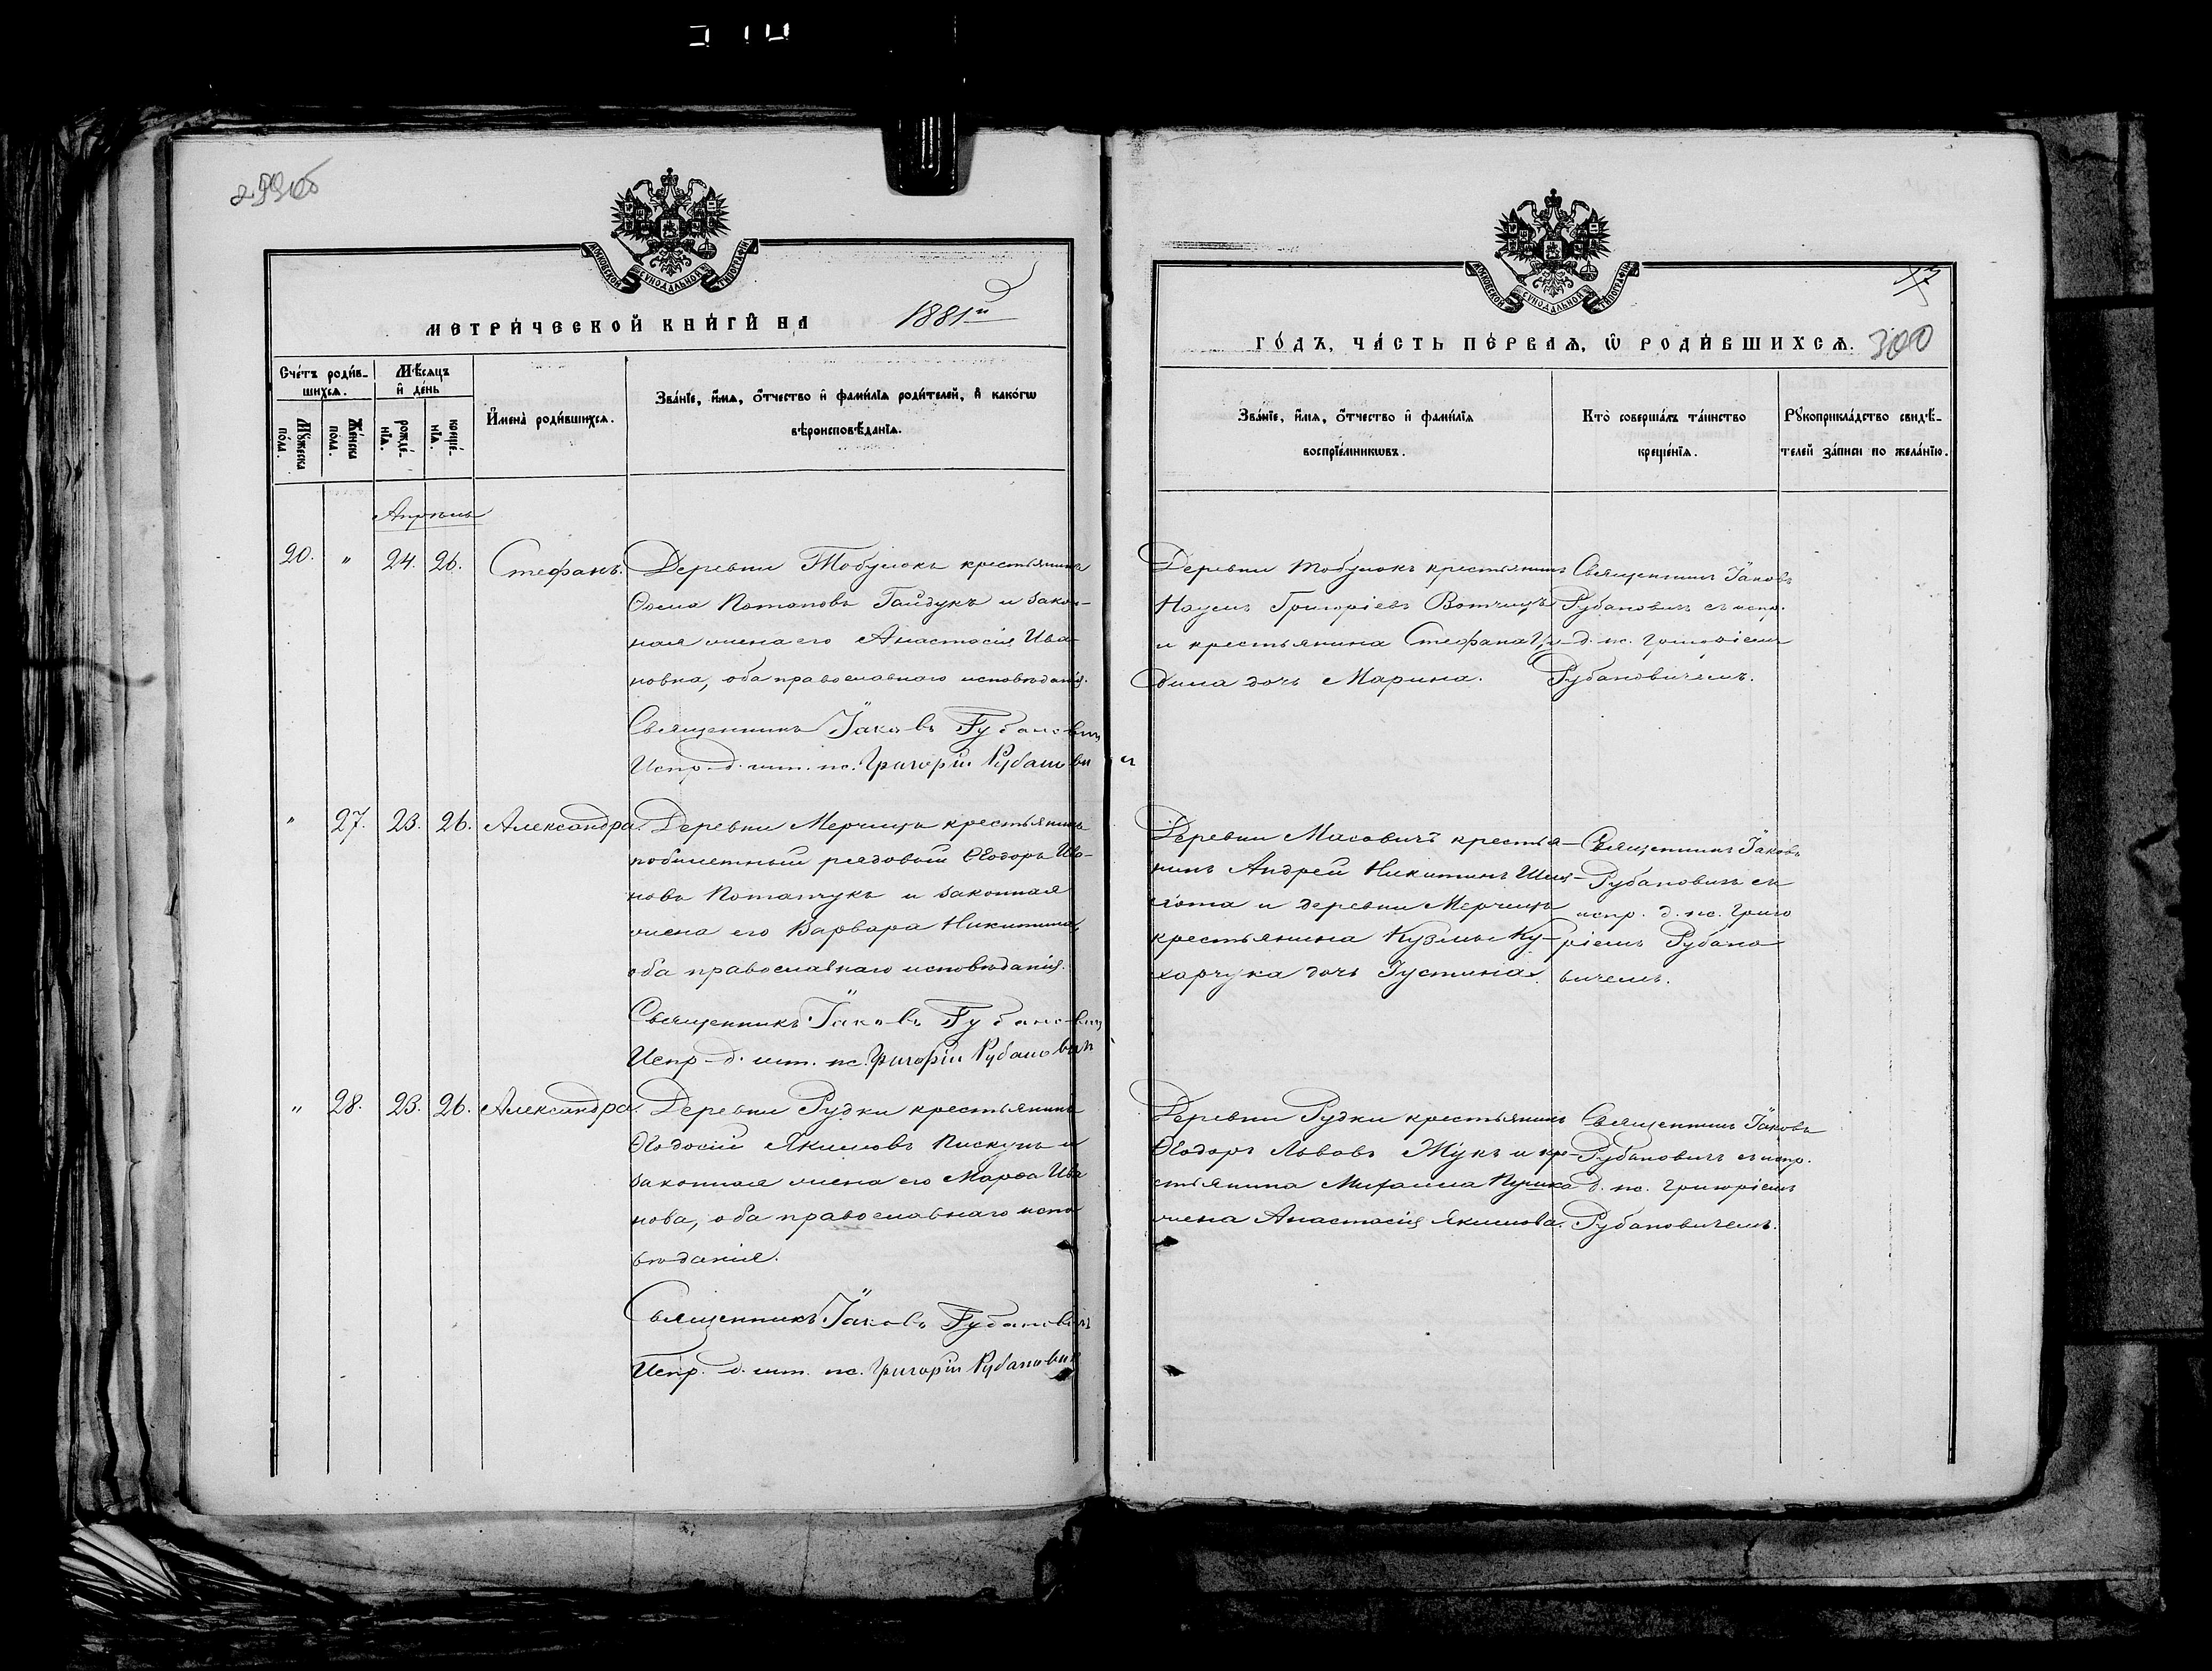 МОСКОВСКОЙ СѴНОДАЛЬНОЙ ТИПОГРАФІИ
МЕТРИ́ЧЕСКОЙ КНИ́ГИ НА 1881й
Сче́тъ роди́в-
шихсѧ.
Мѣ́сѧцъ
и҆ де́нь
Мꙋ́жеска
по́ла.
Же́нска
по́ла.
рожде́-
нїѧ.
креще́-
нїѧ.
И҆мена̀ роди́вшихсѧ.
Зва́нїе, и҆́мѧ, ѻ҆́тчество и҆ фами́лїѧ роди́телей, и҆ како́гѡ
вѣроисповѣ́данїѧ.
Апрѣль
20. " 24. 26. Стефанъ.
Деревни Тобулокъ крестьянинъ
Ѳома Потаповъ Гайдукъ и закон-
ная жена его Анастасія Ива-
новна, оба православнаго исповѣданія.
Священникъ Іаковъ Рубанович
Испр. д. шт. пс. Григорій Рубанович
" 27. 23. 26. Александра.
Деревни Мерчицъ крестьянинъ
побилетный рядовый Ѳеодоръ Ива-
новъ Потапчукъ и законная
жена его Варвара Никитина,
оба православнаго исповѣданія.
Священникъ Іаковъ Рубанович
Испр. д. шт. пс. Григорій Рубанович
" 28. 23. 26. Александра.
Деревни Рудки крестьянинъ
Ѳеодосій Якимовъ Пискунъ и
законная жена его Марѳа Ива
нова, оба православнаго испо
вѣданія.
Священникъ Іаковъ Рубанович
Испр. д. шт. пс. Григорій Рубанович
МОСКОВСКОЙ СѴНОДАЛЬНОЙ ТИПОГРАФІИ
ГО́ДЪ, ЧА́СТЬ ПЕ́РВАѦ, Ѡ҆ РОДИ́ВШИХСѦ. 300
Зва́нїе, и҆́мѧ, ѻ҆́тчество и҆ фами́лїѧ
воспрїе́мникѡвъ.
Кто̀ соверша́лъ та́инство
креще́нїѧ.
Рꙋкоприкла́дство свидѣ́-
телей за́писи по жела́нїю.
Деревни Тобулокъ крестьянинъ
Наумъ Григоріевъ Вотчицъ
и крестьянина Стефана
дочь Марина.
Священникъ Іаковъ
Рубановичъ съ испр.
д. пс. Григоріемъ
Рубановичемъ.
Деревни Масевичъ крестья-
нинъ Андрей Никитинъ
и деревни Мерчицъ
крестьянина Кузмы Ку-
харчука дочь Іустина.
Священникъ Іаковъ
Рубановичъ съ
испр. д. пс. Григо
ріемъ Рубано
вичемъ.
Деревни Рудки крестьянинъ
Ѳеодоръ Львовъ Жукъ и кре-
стьянина Михаила Пушка
жена Анастасія Якимова.
Священникъ Іаковъ
Рубановичъ съ испр.
д. пс. Григоріемъ
Рубановичемъ.